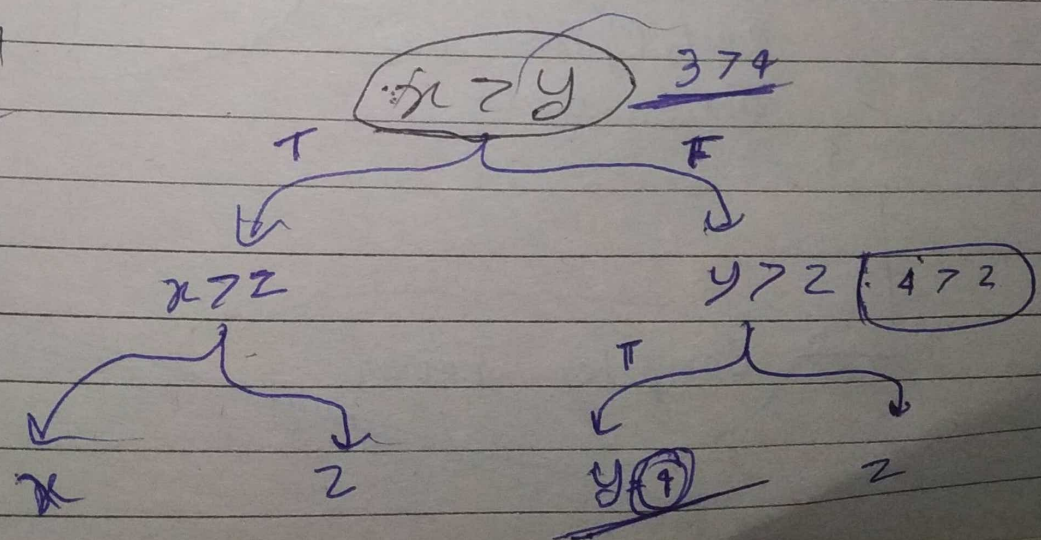 x > y 3 > 4
T F
x > z y > z 4 > 2
T
x z y 4 z